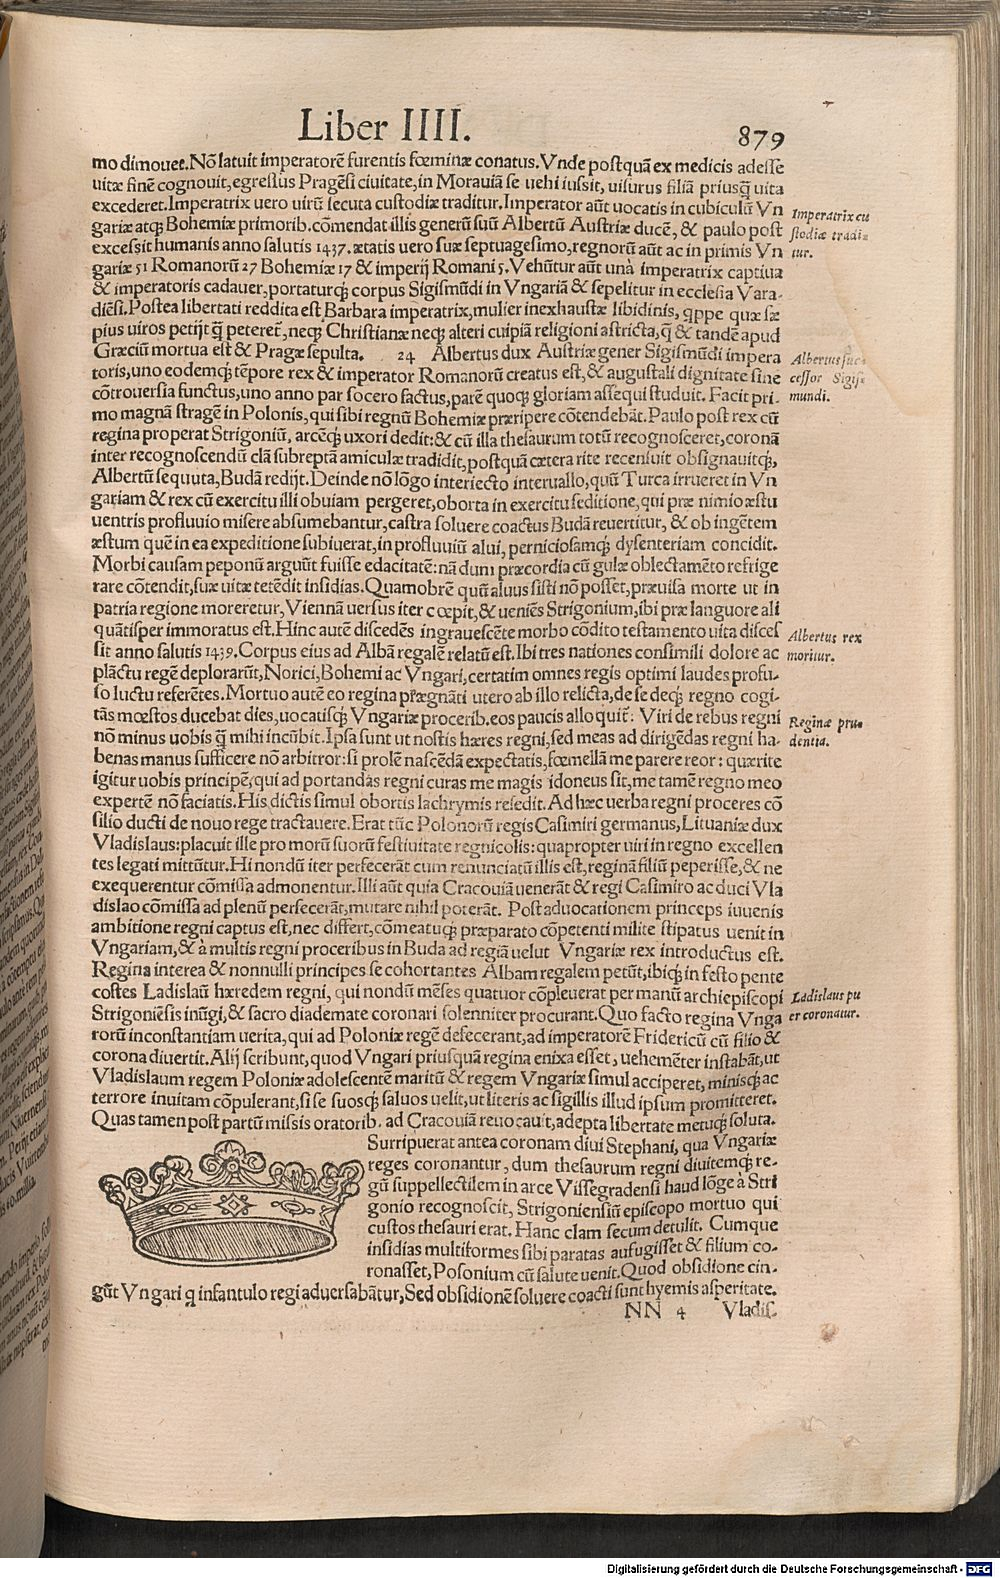 Liber IIII.
879
mo dimouet. Nō latuit imperatorē furentis fœminæ conatus. Vnde postquā ex medicis adesse
uitæ finē cognouit, egressus Pragēsi ciuitate, in Morauiā se uehi iussit, uisurus filiā priusq̄ uita
excederet. Imperatrix uero uirū secuta custodiæ traditur. Imperator aūt uocatis in cubiculū Vn
gariæ atq; Bohemiæ primorib. cōmendat illis generū suū Albertū Austriæ ducē, & paulo post
excessit humanis anno salutis 1437. ætatis uero suæ septuagesimo, regnorū aūt ac in primis Vn
gariæ 51 Romanorū 27 Bohemiæ 17 & imperij Romani 5. Vehūtur aūt unà imperatrix captiua
& imperatoris cadauer, portaturq; corpus Sigismūdi in Vngariā & sepelitur in ecclesia Vara-
diēsi. Postea libertati reddita est Barbara imperatrix, mulier inexhaustæ libidinis, q̃ppe quæ sæ
pius uiros petijt q̄ peteret̃, neq; Christianæ neq; alteri cuipiā religioni astricta, q̃ & tandē apud
Græciū mortua est & Pragæ sepulta. 24 Albertus dux Austriæ gener Sigismūdi impera
toris, uno eodemq; tēpore rex & imperator Romanorū creatus est, & augustali dignitate sine
cōtrouersia functus, uno anno par socero factus, parē quoq; gloriam assequi studuit. Facit pri-
mo magnā stragē in Polonis, qui sibi regnū Bohemiæ præripere cōtendebāt. Paulo post rex cū
regina properat Strigoniū, arcēq; uxori dedit: & cū illa thesaurum totū recognosceret, coronā
inter recognoscendū clā subreptā amiculæ tradidit, postquā cætera rite recensuit obsignauitq;,
Albertū sequuta, Budā redijt. Deinde nō lōgo interiecto interuallo, quū Turca irrueret in Vn
gariam & rex cū exercitu illi obuiam pergeret, oborta in exercitu seditione, qui præ nimio æstu
uentris profluuio misere absumebantur, castra soluere coactus Budā reuertitur, & ob ingētem
æstum quē in ea expeditione subiuerat, in profluuiū alui, perniciosamq; dysenteriam concidit.
Morbi causam peponū arguūt fuisse edacitatē: nā dum præcordia cū gulæ oblectamēto refrige
rare cōtendit, suæ uitæ tetēdit insidias. Quamobrē quū aluus sisti nō posset, præuisa morte ut in
patria regione moreretur, Viennā uersus iter cœpit, & ueniēs Strigonium, ibi præ languore ali
quātisper immoratus est. Hinc autē discedēs ingrauescēte morbo cōdito testamento uita disces
sit anno salutis 1439. Corpus eius ad Albā regalē relatū est. Ibi tres nationes consimili dolore ac
plāctu regē deplorarūt, Norici, Bohemi ac Vngari, certatim omnes regis optimi laudes profu-
so luctu referētes. Mortuo autē eo regina prægnāti utero ab illo relicta, de se deq; regno cogi-
tās mœstos ducebat dies, uocatisq; Vngariæ procerib. eos paucis alloquit̃: Viri de rebus regni
nō minus uobis q̄ mihi incūbit. Ipsa sunt ut nostis hæres regni, sed meas ad dirigēdas regni ha-
benas manus sufficere nō arbitror: si prolē nascēdā expectatis, fœmellā me parere reor: quærite
igitur uobis principē, qui ad portandas regni curas me magis idoneus sit, me tamē regno meo
expertē nō faciatis. His dictis simul obortis lachrymis resedit. Ad hæc uerba regni proceres cō
silio ducti de nouo rege tractauere. Erat tūc Polonorū regis Casimiri germanus, Lituaniæ dux
Vladislaus: placuit ille pro morū suorū festiuitate regnicolis: quapropter uiri in regno excellen
tes legati mittūtur. Hi nondū iter perfecerāt cum renunciatū illis est, reginā filiū peperisse, & ne
exequerentur cōmissa admonentur. Illi aūt quia Cracouiā uenerāt & regi Casimiro ac duci Vla
dislao cōmissa ad plenū perfecerāt, mutare nihil poterāt. Post aduocationem princeps iuuenis
ambitione regni captus est, nec differt, cōmeatuq; præparato cōpetenti milite stipatus uenit in
Vngariam, & à multis regni proceribus in Buda ad regiā uelut Vngariæ rex introductus est.
Regina interea & nonnulli principes se cohortantes Albam regalem petūt, ibiq; in festo pente
costes Ladislaū hæredem regni, qui nondū mēses quatuor cōpleuerat per manū archiepiscopi
Strigoniēsis inūgi, & sacro diademate coronari solenniter procurant. Quo facto regina Vnga
rorū inconstantiam uerita, qui ad Poloniæ regē defecerant, ad imperatorē Fridericū cū filio &
corona diuertit. Alij scribunt, quod Vngari priusquā regina enixa esset, uehemēter instabāt, ut
Vladislaum regem Poloniæ adolescentē maritū & regem Vngariæ simul acciperet, minisq; ac
terrore inuitam cōpulerant, si se suosq; saluos uelit, ut literis ac sigillis illud ipsum promitteret.
Quas tamen post partū missis oratorib. ad Cracouiā reuocauit, adepta libertate metuq; soluta.
Surripuerat antea coronam diui Stephani, qua Vngariæ
reges coronantur, dum thesaurum regni diuitemq; re-
gū suppellectilem in arce Vissegradensi haud lōge à Stri
gonio recognoscit, Strigoniensiū episcopo mortuo qui
custos thesauri erat. Hanc clam secum detulit. Cumque
insidias multiformes sibi paratas aufugisset & filium co-
ronasset, Posonium cū salute uenit. Quod obsidione cin-
gūt Vngari q̃ infantulo regi aduersabātur, Sed obsidionē soluere coacti sunt hyemis asperitate.
NN 4 Vladis-
Imperatrix cu
stodiæ tradi-
tur.
Albertus suc-
cessor Sigis-
mundi.
Albertus rex
moritur.
Reginæ pru-
dentia.
Ladislaus pu
er coronatur.
Digitalisierung gefördert durch die Deutsche Forschungsgemeinschaft - DFG